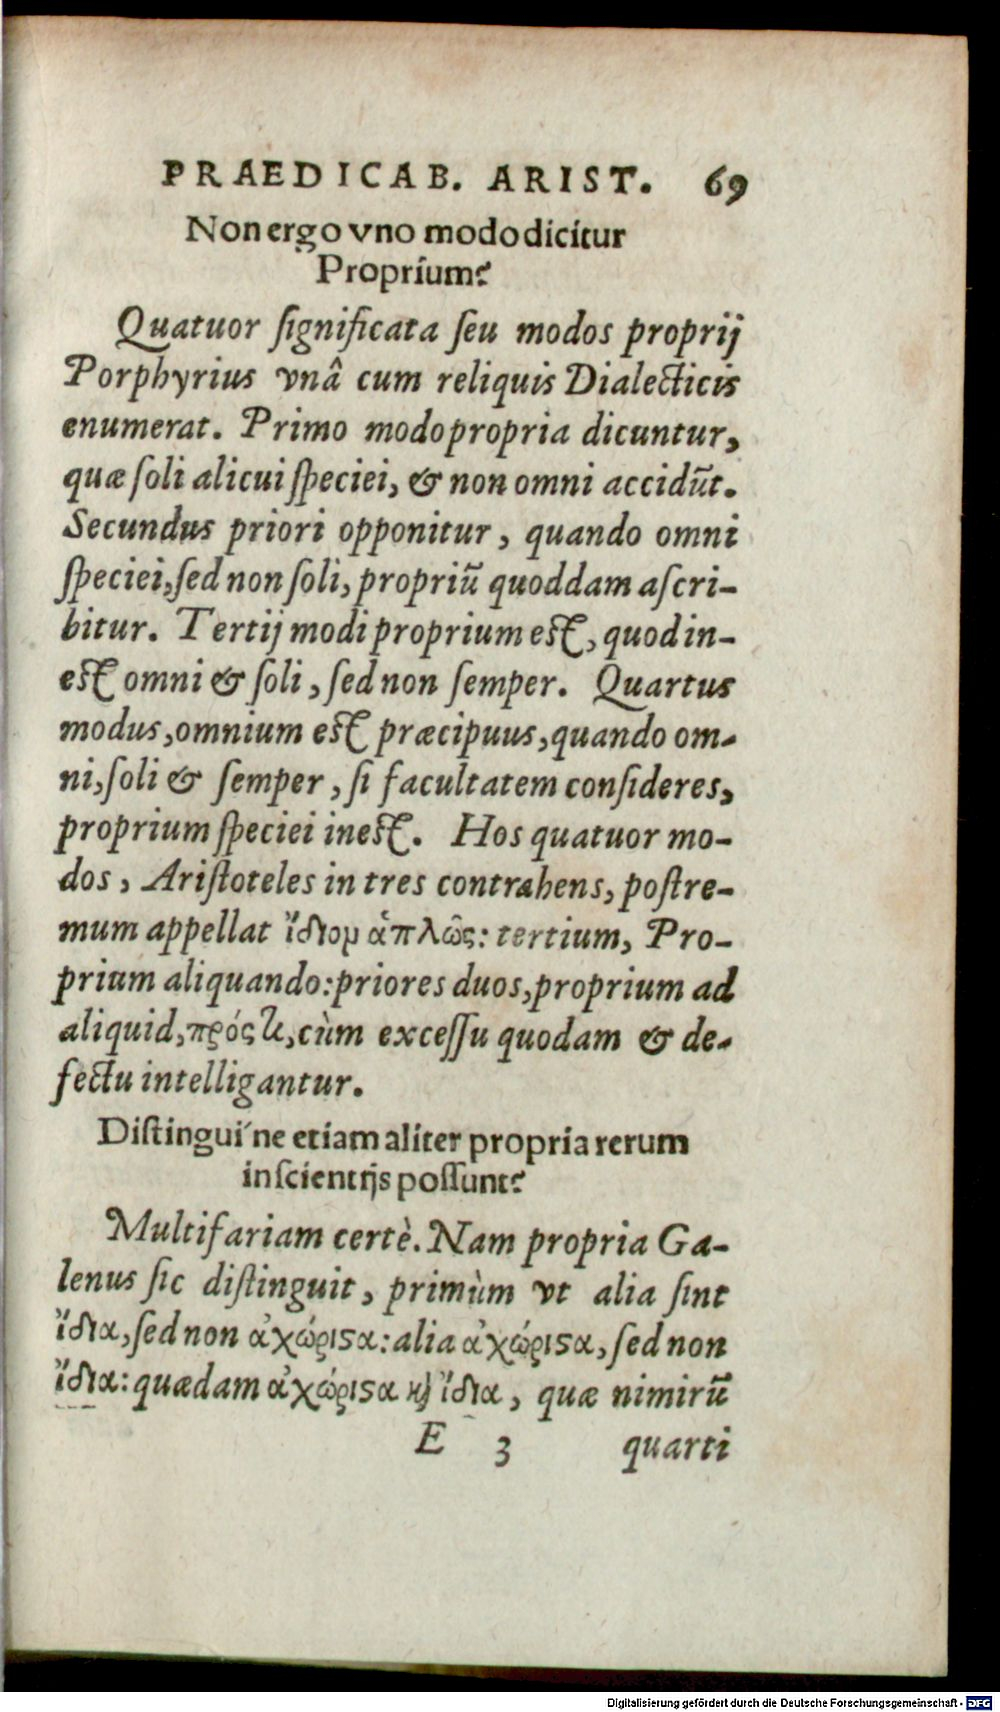 PRAEDICAB. ARIST. 69
Non ergo vno modo dicitur
Proprium?
Quatuor ſignificata ſeu modos proprij
Porphyrius vnâ cum reliquis Dialecticis
enumerat. Primo modo propria dicuntur,
quæ ſoli alicui ſpeciei, & non omni accidũt.
Secundus priori opponitur, quando omni
ſpeciei, ſed non ſoli, propriũ quoddam aſcri-
bitur. Tertij modi proprium eſt, quod in-
eſt omni & ſoli, ſed non ſemper. Quartus
modus, omnium eſt præcipuus, quando om-
ni, ſoli & ſemper, ſi facultatem conſideres,
proprium ſpeciei ineſt. Hos quatuor mo-
dos, Ariſtoteles in tres contrahens, poſtre-
mum appellat ἴδιον ἁπλῶς: tertium, Pro-
prium aliquando: priores duos, proprium ad
aliquid, πρός τι, cùm exceſſu quodam & de-
fectu intelligantur.
Diſtingui´ne etiam aliter propria rerum
in ſcientijs poſſunt?
Multifariam certè. Nam propria Ga-
lenus ſic diſtinguit, primùm vt alia ſint
ἴδια, ſed non ἀχώριϛα: alia ἀχώριϛα, ſed non
ἴδια: quædam ἀχώριϛα ϗ ἴδια, quæ nimirũ
E 3 quarti
Digitalisierung gefördert durch die Deutsche Forschungsgemeinschaft - DFG